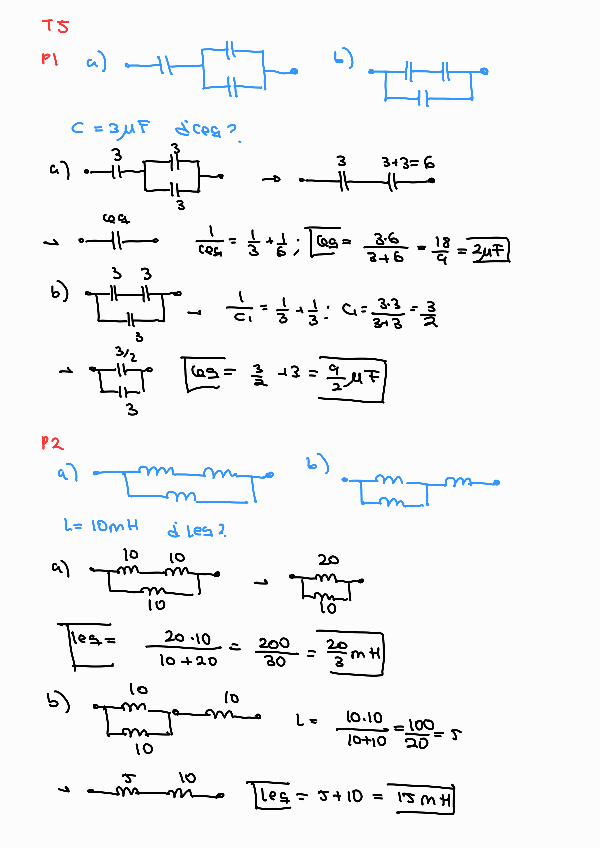 T5
P1 a) b)
C = 3μF ¿Ceq?
a) 3 3 3 → 3 3+3=6
→ Ceq 1/Ceq = 1/3 + 1/6 ; Ceq = 3·6/3+6 = 18/9 = 2μF
b) 3 3 3 → 1/C1 = 1/3 + 1/3 : C1 = 3·3/3+3 = 3/2
→ 3/2 3 Ceq = 3/2 + 3 = 9/2 μF
P2
a) b)
L = 10mH ¿Leq?
a) 10 10 10 → 20 10
Leq = 20·10/10+20 = 200/30 = 20/3 mH
b) 10 10 10 L = 10·10/10+10 = 100/20 = 5
→ 5 10 Leq = 5+10 = 15mH